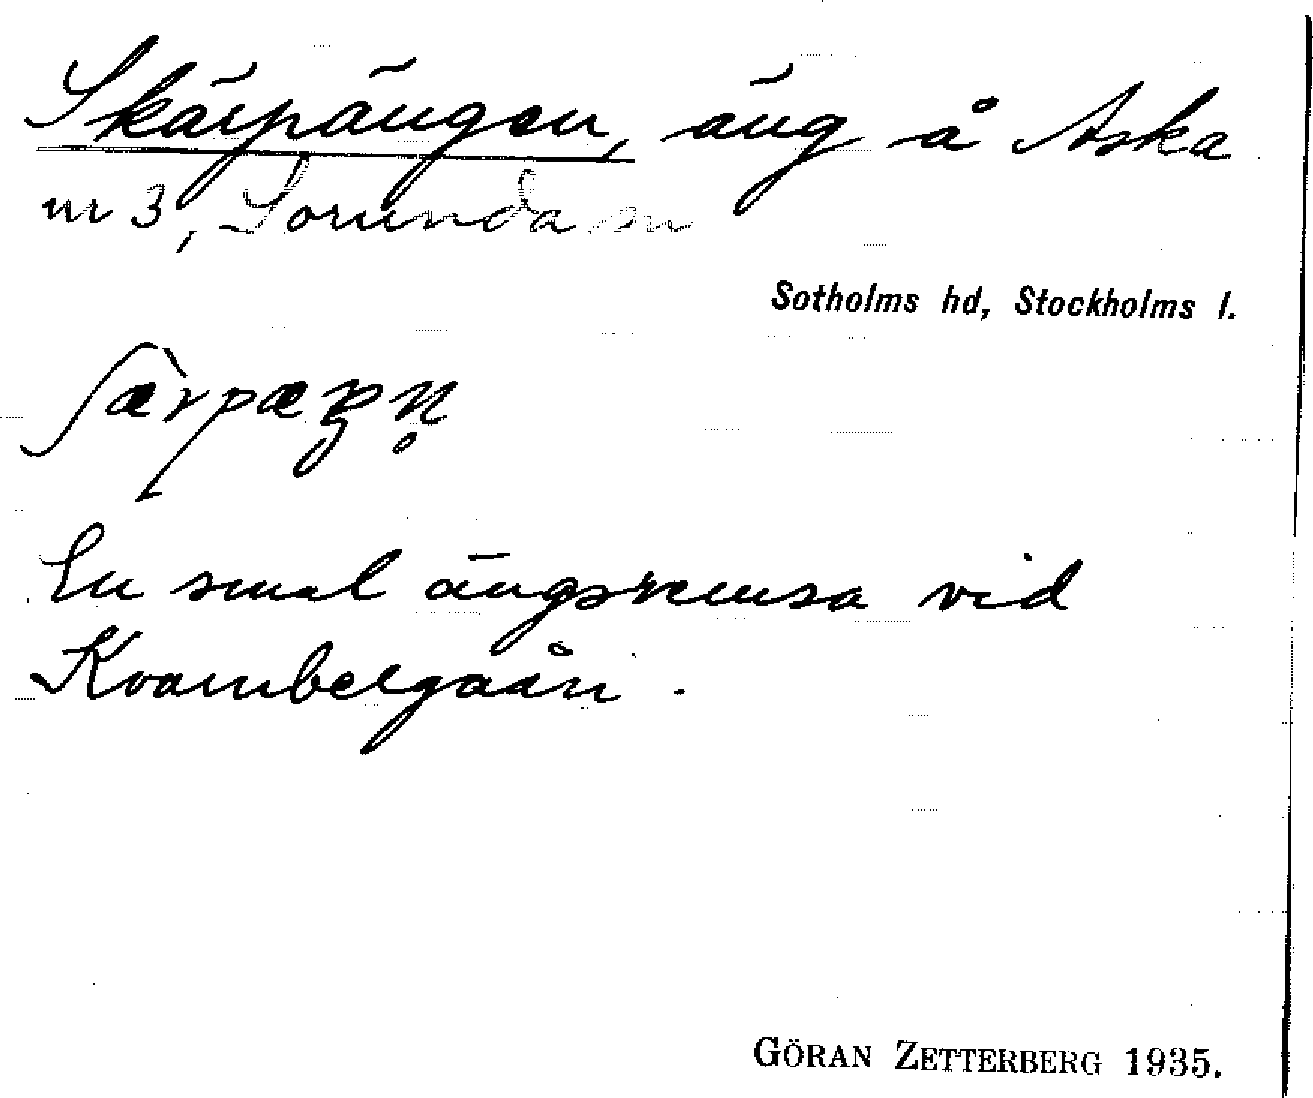 Skärpängen, äng å Aska
nr 3, Sorunda sn
Sotholms hd, Stockholms l.
En smal ängsremsa vid
Kvarnbergaån.
GÖRAN ZETTERBERG 1935.